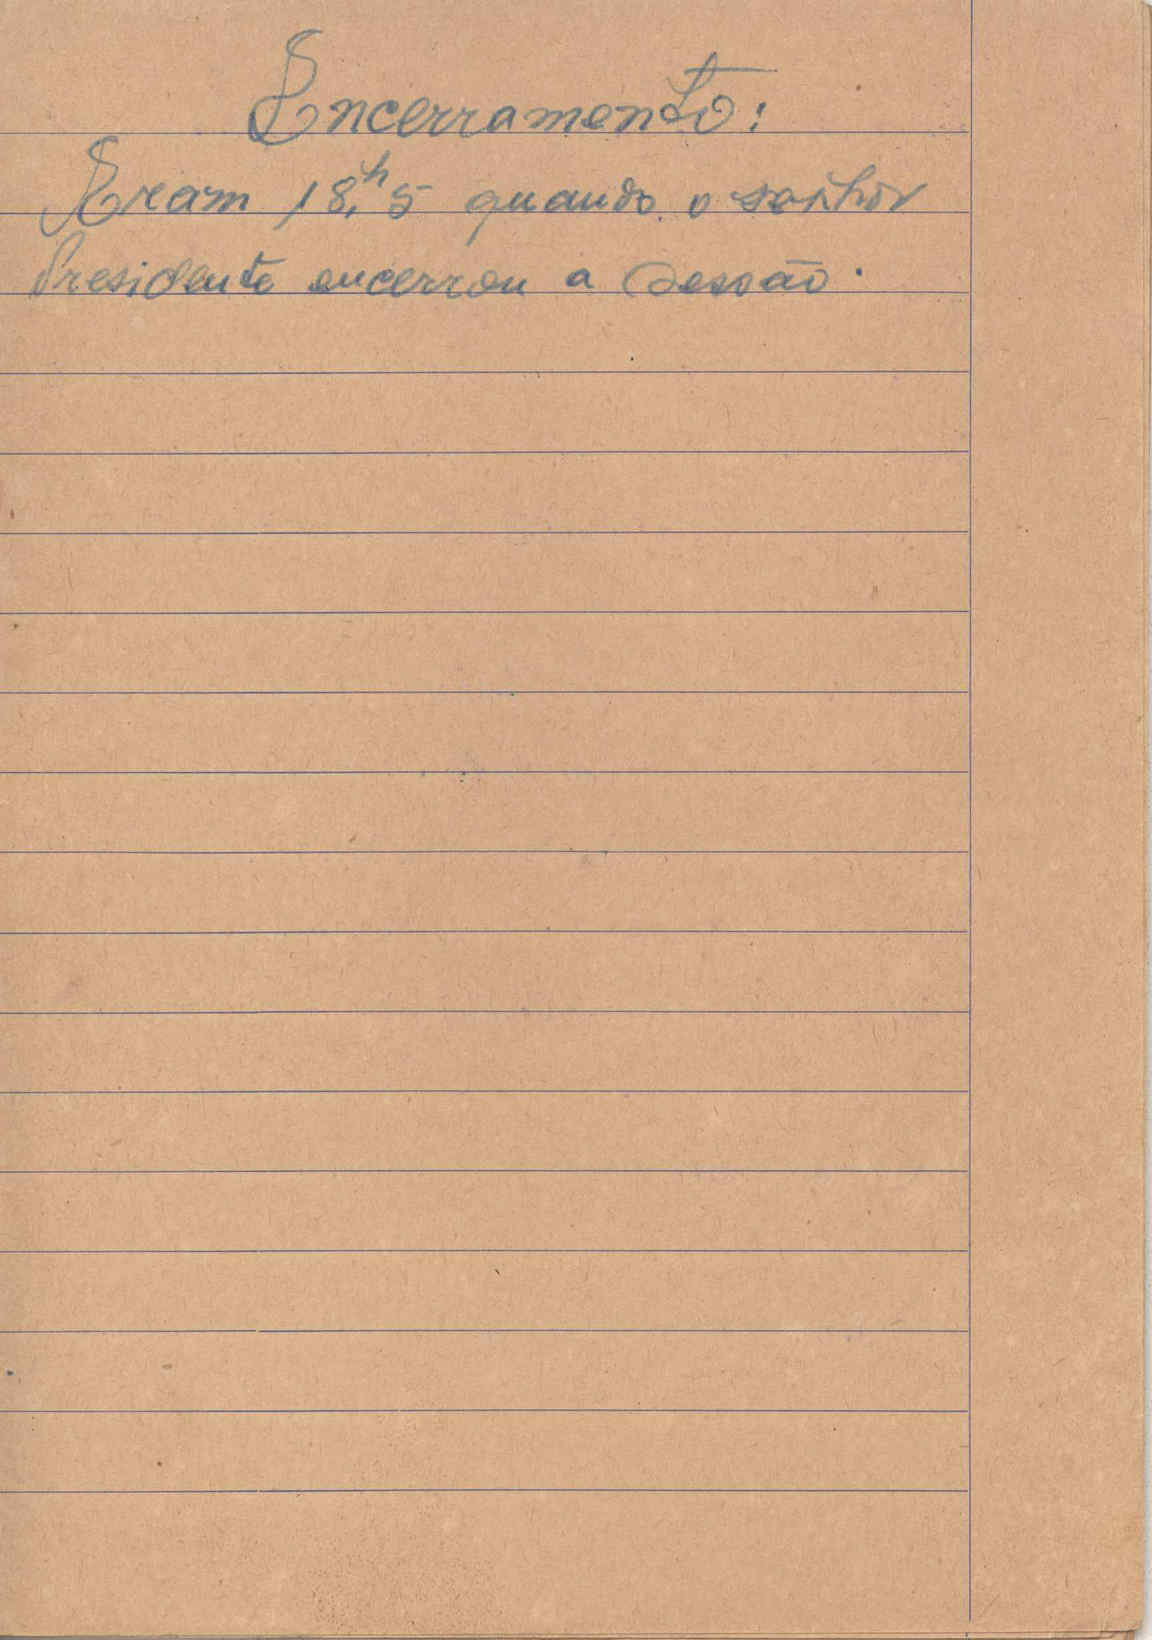 Encerramento:
Eram 18,h5 quando o senhor
Presidente encerrou a Sessão.